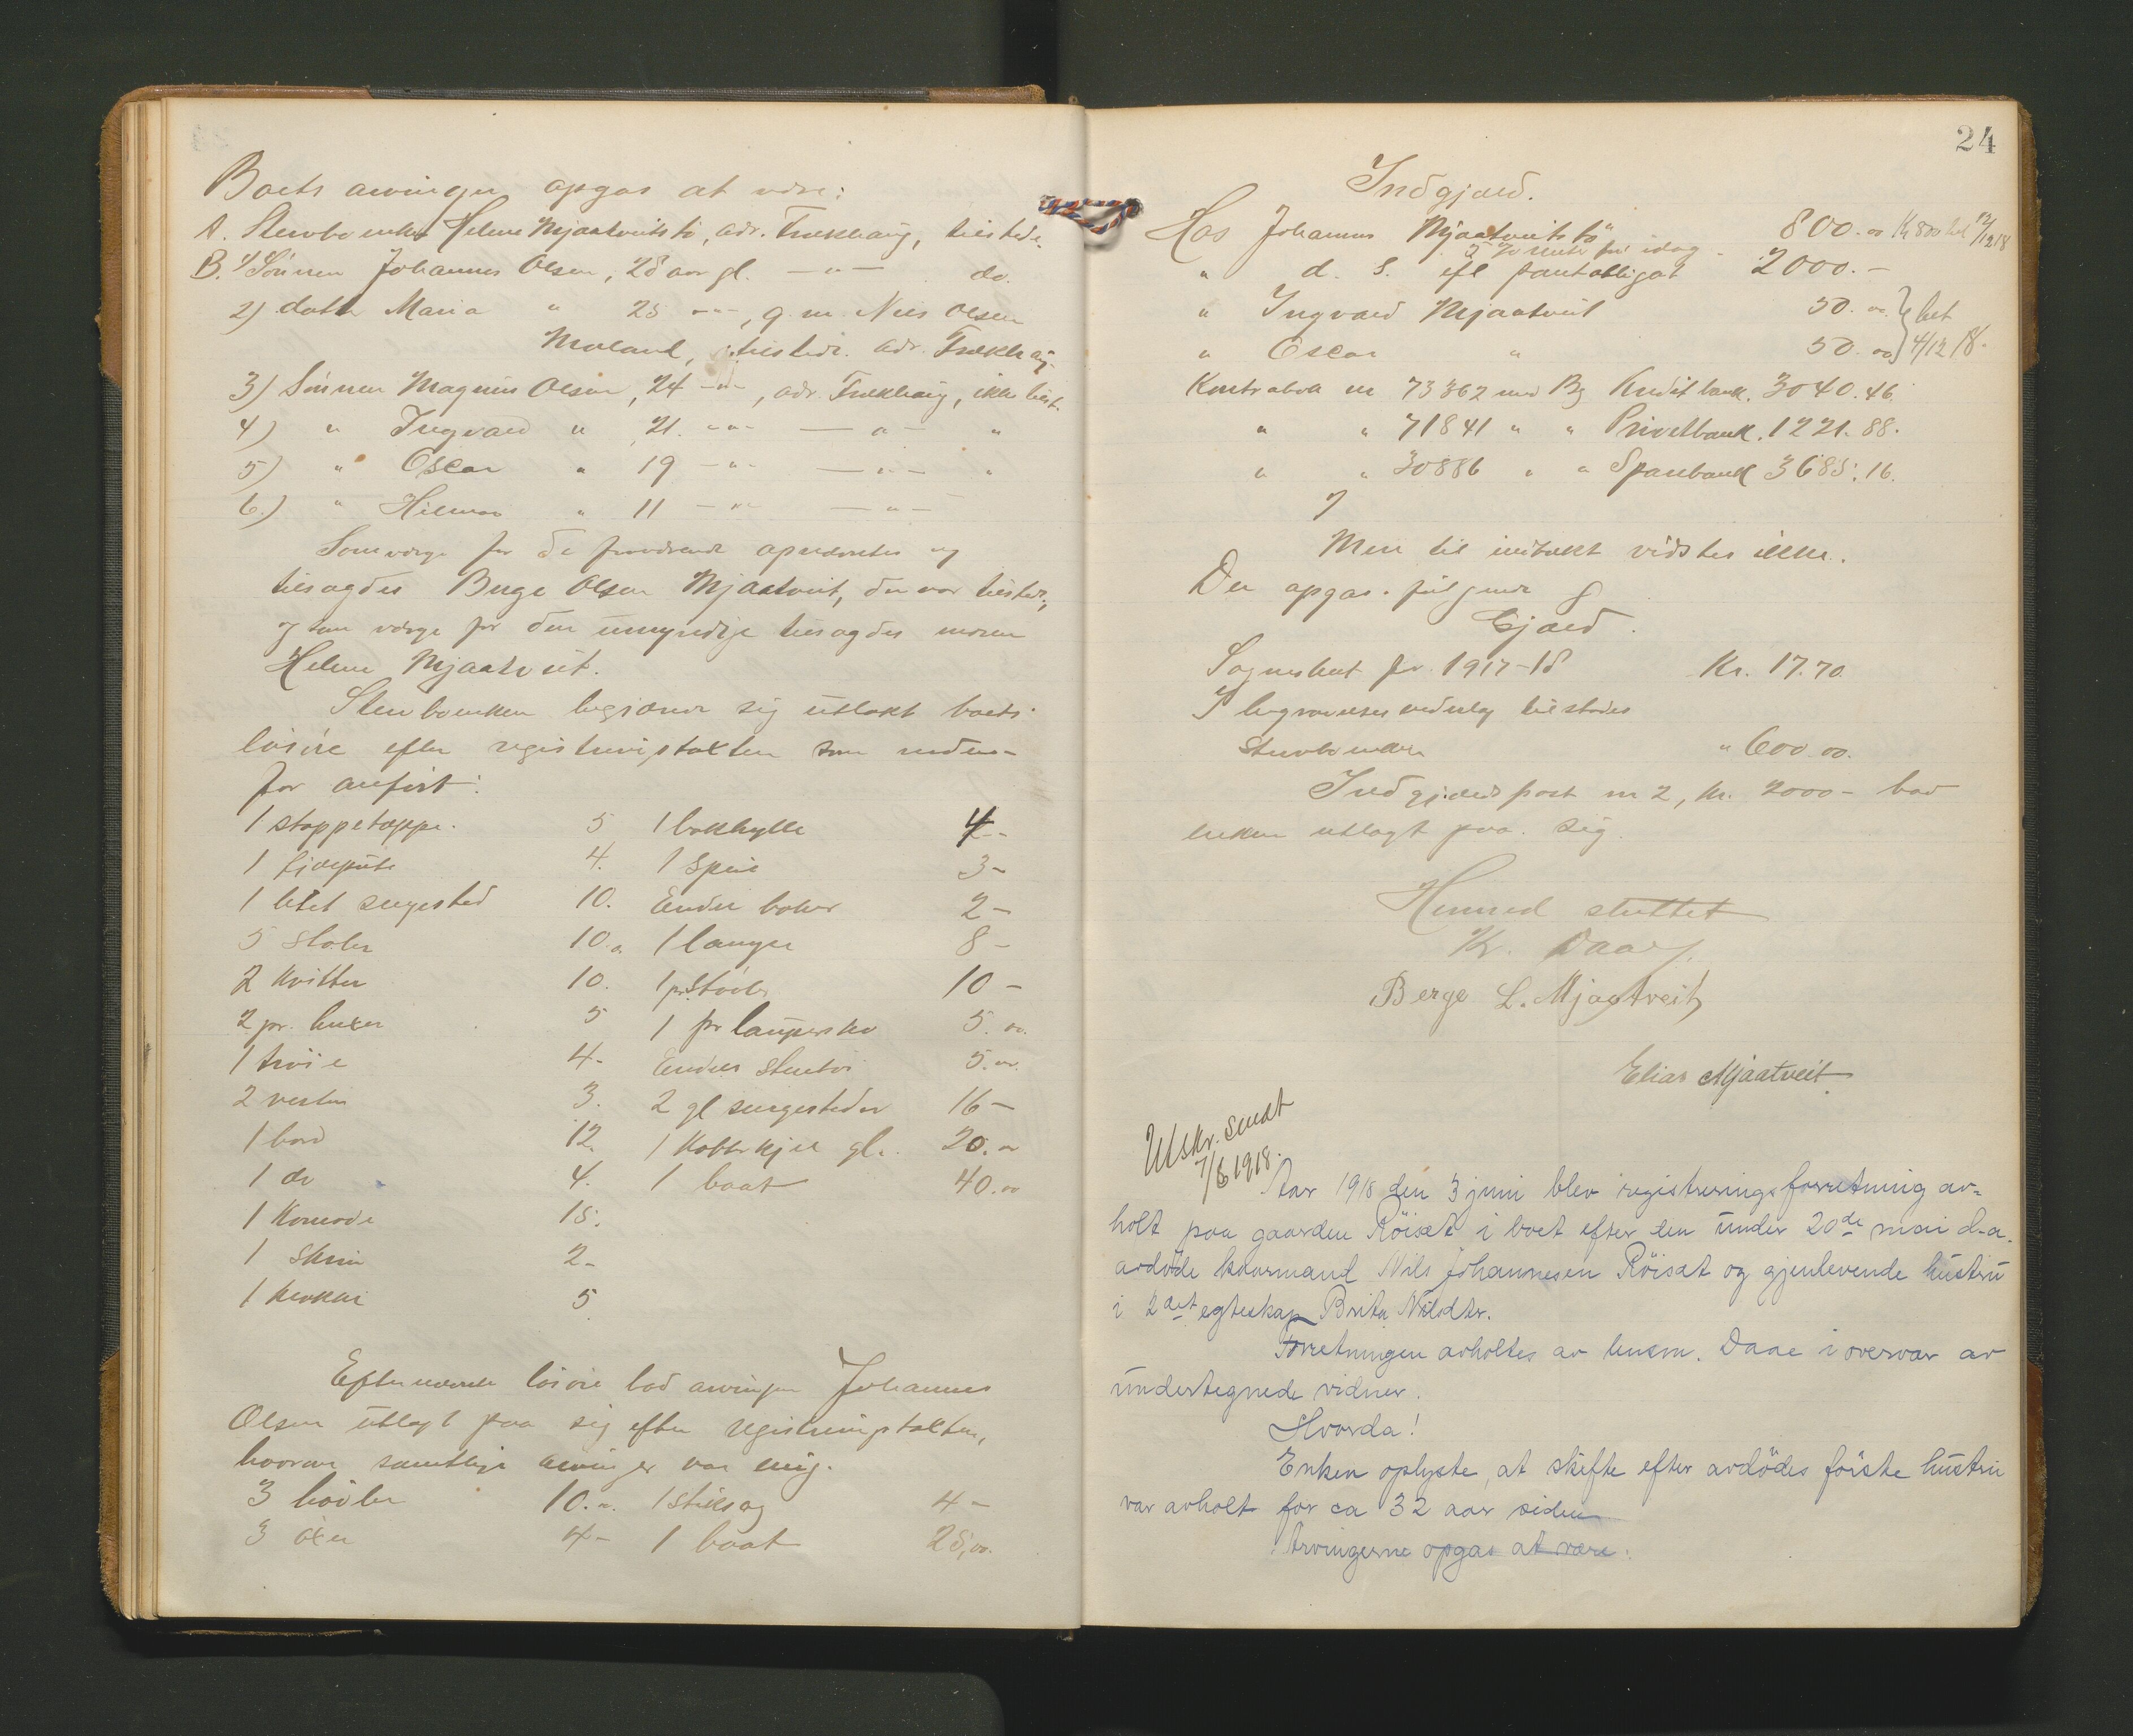 Boets arvinger opgas at være:
A. Stervboenke Helene Mjaatveitstø, adr. Frekhaug, tilstede.
B. 1) Sönnen Johannes Olsen, 28 aar gl. — " — do.
2) datter Maria " 25 — " —, g. m. Nils Olsen
Moland, tilstede. adr. Frekhaug
3) Sönnen Magnus Olsen, 24 — " —, adr. Frekhaug, ikke tilst.
4) " Ingvald " 21. — " — — " — "
5) " Oscar " 19 — " — — " — "
6.) " Hilmar " 11 — " — — " —
Som verge for de fraværende opnævntes og
tilsagdes Berge Olsen Mjaatveit, der var tilstede,
og som værge for den umyndige tilsagdes moren
Helene Mjaatveit.
Stervboenken begjærer sig utlakt boets
lösöre efter registreringstakten som neden-
for anfört:
1 stoppetæppe. 5 1 bokhylle 4 -
1 fjærpute 4. 1 speil 3 -
1 litet sengested 10. Endel boker 2 -
5 stoler 10. 1 lampe 8 -
2 kvitler 10. 1 pr. Stövler 10 -
2 pr. buxer 5 1 pr lauparsko 5. oo.
1 tröie 4 - Endel Stentöi 5. oo.
2 vester 3. 2 gl sengesteder 16 -
1 bord 12. 1 Kobberkjel gl. 20. oo
1 do 4. 1 baat 40. oo
1 Komode 15.
1 Skrin 2 -
1 5
Efternevnte lösöre bad arvingen Johannes
Olsen utlagt paa sig efter registreringstakten,
hvorom samtlige arvinger var enig.
3 hövler 10. oo. 1 Stiksag 4 -
3 öxer 4 - 1 baat 25, oo.
24
Indgjæld.
Hos Johannes Mjaatveitstö 800. oo Kr 800 bet 12/12 18
5 % rente fra idag
" d. s. efl pantobligat 2000. -
" Ingvald Mjaatveit 50. oo. } bet
" Oscar " 50. oo } 4/12 18.
Kontrabok nr 73362 med Bg Kreditbank. 3040. 46.
" " 71841 " " Privatbank. 1221. 88.
" " 30886 " " Sparebank 3685. 16.
Mere til indtækt vidstes ikke.
Der opgas fölgende
Gjæld.
Sogneskat for 1917-18 Kr. 17.70.
I begravelses vederlag tilstodes
Stervboenken " 600. oo.
Indgjælds post nr 2, kr. 2000 - bad
enken utlagt paa sig.
Hermed sluttet
Kr. Daae.
Berge L. Mjaatveit
Elias Mjaatveit
Utskr. sendt
7/6 1918.
Aar 1918 den 3 juni blev registreringsforretning av-
holt paa gaarden Röisæt i boet efter den under 20de mai d.a.
avdöde kaarmand Nils Johannesen Röisæt og gjenlevende hustru
i 2det egteskap Brita Nilsdtr.
Forretningen avholtes av lensm. Daae i overvær av
undertegnede vidner.
Hvorda!
Enken oplyste, at skifte efter avdödes förste hustru
var avholt for ca 32 aar siden
Arvingerne opgas at være: